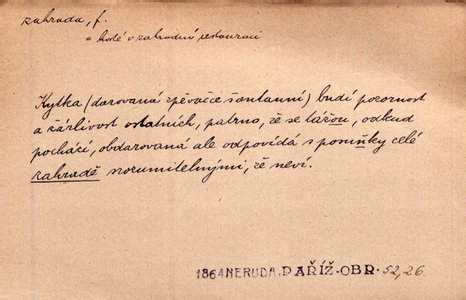 zahrada, f.
= hosté v zahradní restauraci
Kytka (darovaná zpěvačce šantanní) budí pozornost
a žárlivost ostatních, patrno, že se tážou, odkud
pochází, obdarovaná ale odpovídá s posuňky celé
zahradě srozumitelnými, že neví.
1864 NERUDA, PAŘÍŽ-OBR. 52,26